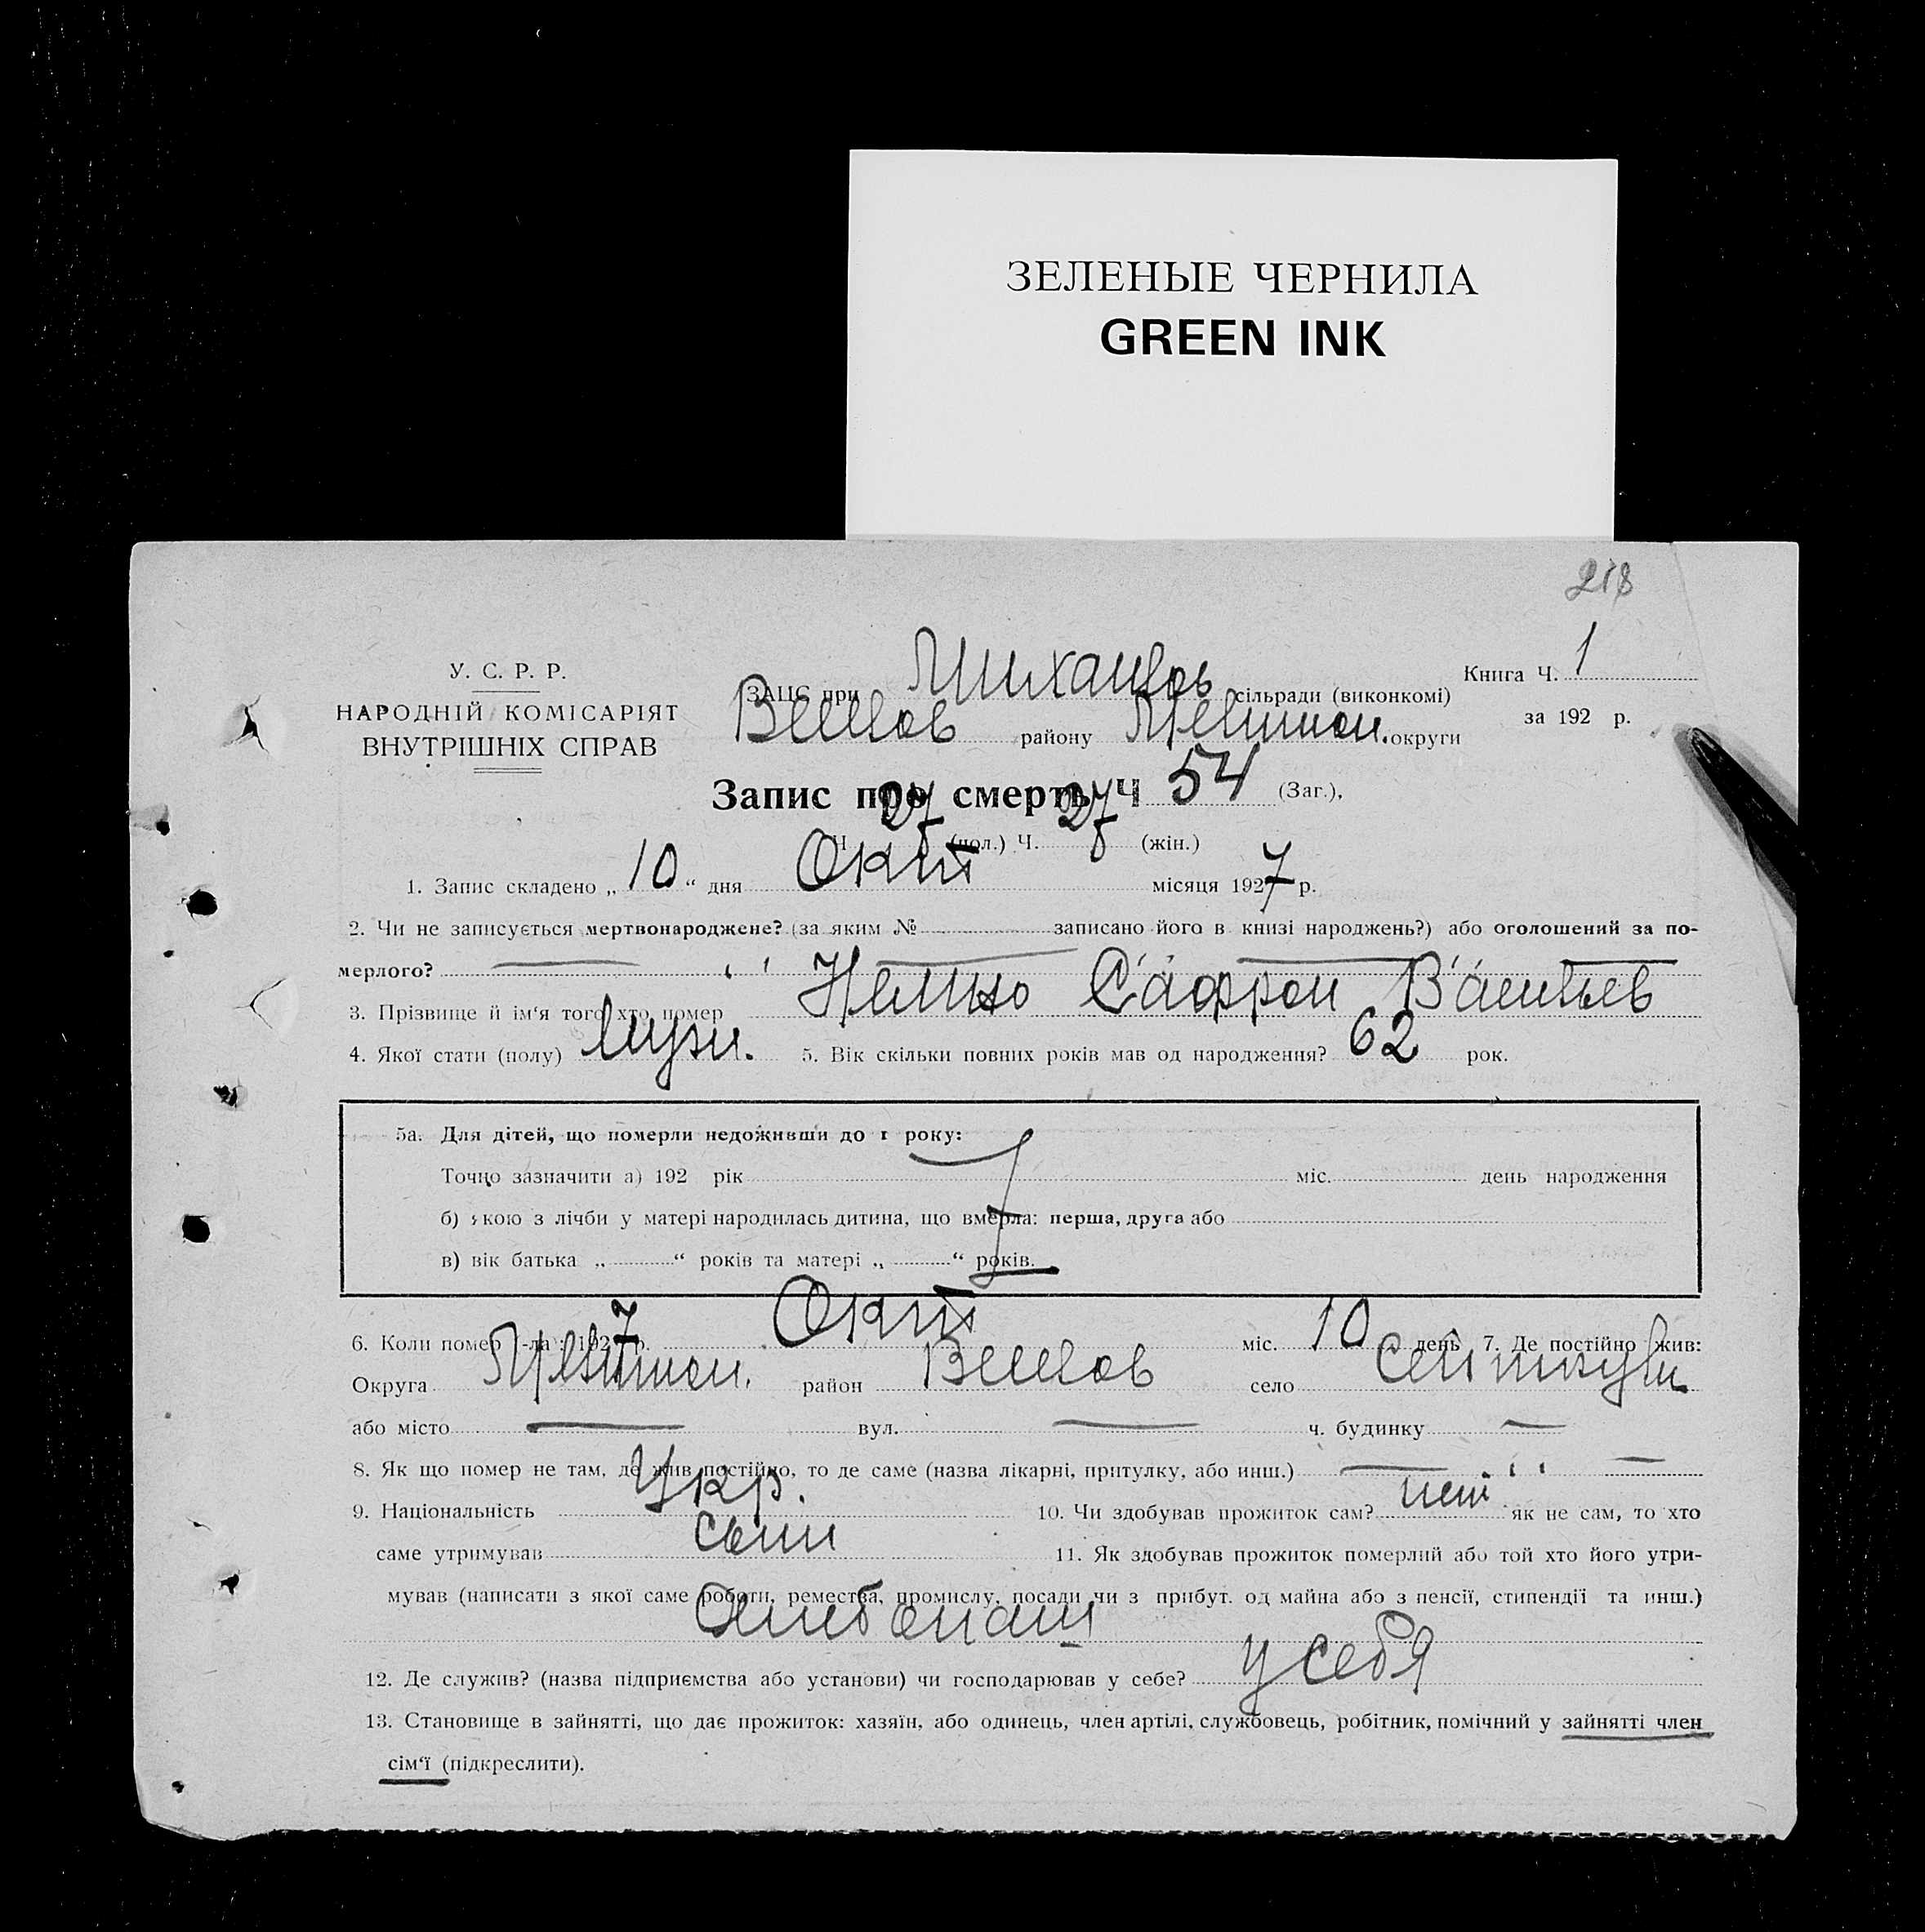 ЗЕЛЕНЫЕ ЧЕРНИЛА
GREEN INK
218
У. С. Р. Р.
НАРОДНІЙ КОМІСАРІЯТ
ВНУТРІШНІХ СПРАВ
Книга Ч. 1
за 192 р.
ЗАЦС при Михайлов сільради (виконкомі)
району округи
Запис про смерть Ч 54 (Заг.),
Ч 27 (пол.) Ч. 27 (жін.)
1. Запис складено „10“ дня Окт місяця 1927 р.
2. Чи не записується мертвонароджене? (за яким № записано його в книзі народжень?) або оголошений за по-
мерлого?
3. Прізвище й ім‘я того хто помер Сафрон Васильев
4. Якої стати (полу) мужч. 5. Вік скільки повних років мав од народження? 62 рок.
5а. Для дітей, що померли недоживши до 1 року:
Точно зазначити а) 192 рік міс. день народження
б) якою з лічби у матері народилась дитина, що вмерла: перша, друга або
в) вік батька „ “ років та матері „ “ років.
6. Коли помер -ла : 1927 р. Окт міс. 10 день 7. Де постійно жив:
Округа район село
або місто вул. ч. будинку
8. Як що помер не там, де жив постійно, то де саме (назва лікарні, притулку, або инш.)
9. Національність Укр. 10. Чи здобував прожиток сам? нет як не сам, то хто
саме утримував сын 11. Як здобував прожиток померлий або той хто його утри-
мував (написати з якої саме роботи, ремества, промислу, посади чи з прибут. од майна або з пенсії, стипендії та инш.)
12. Де служив? (назва підприємства або установи) чи господарював у себе? у себя
13. Становище в зайнятті, що дає прожиток: хазяїн, або одинець, член артілі, службовець, робітник, помічний у зайнятті член
сім‘ї (підкреслити).